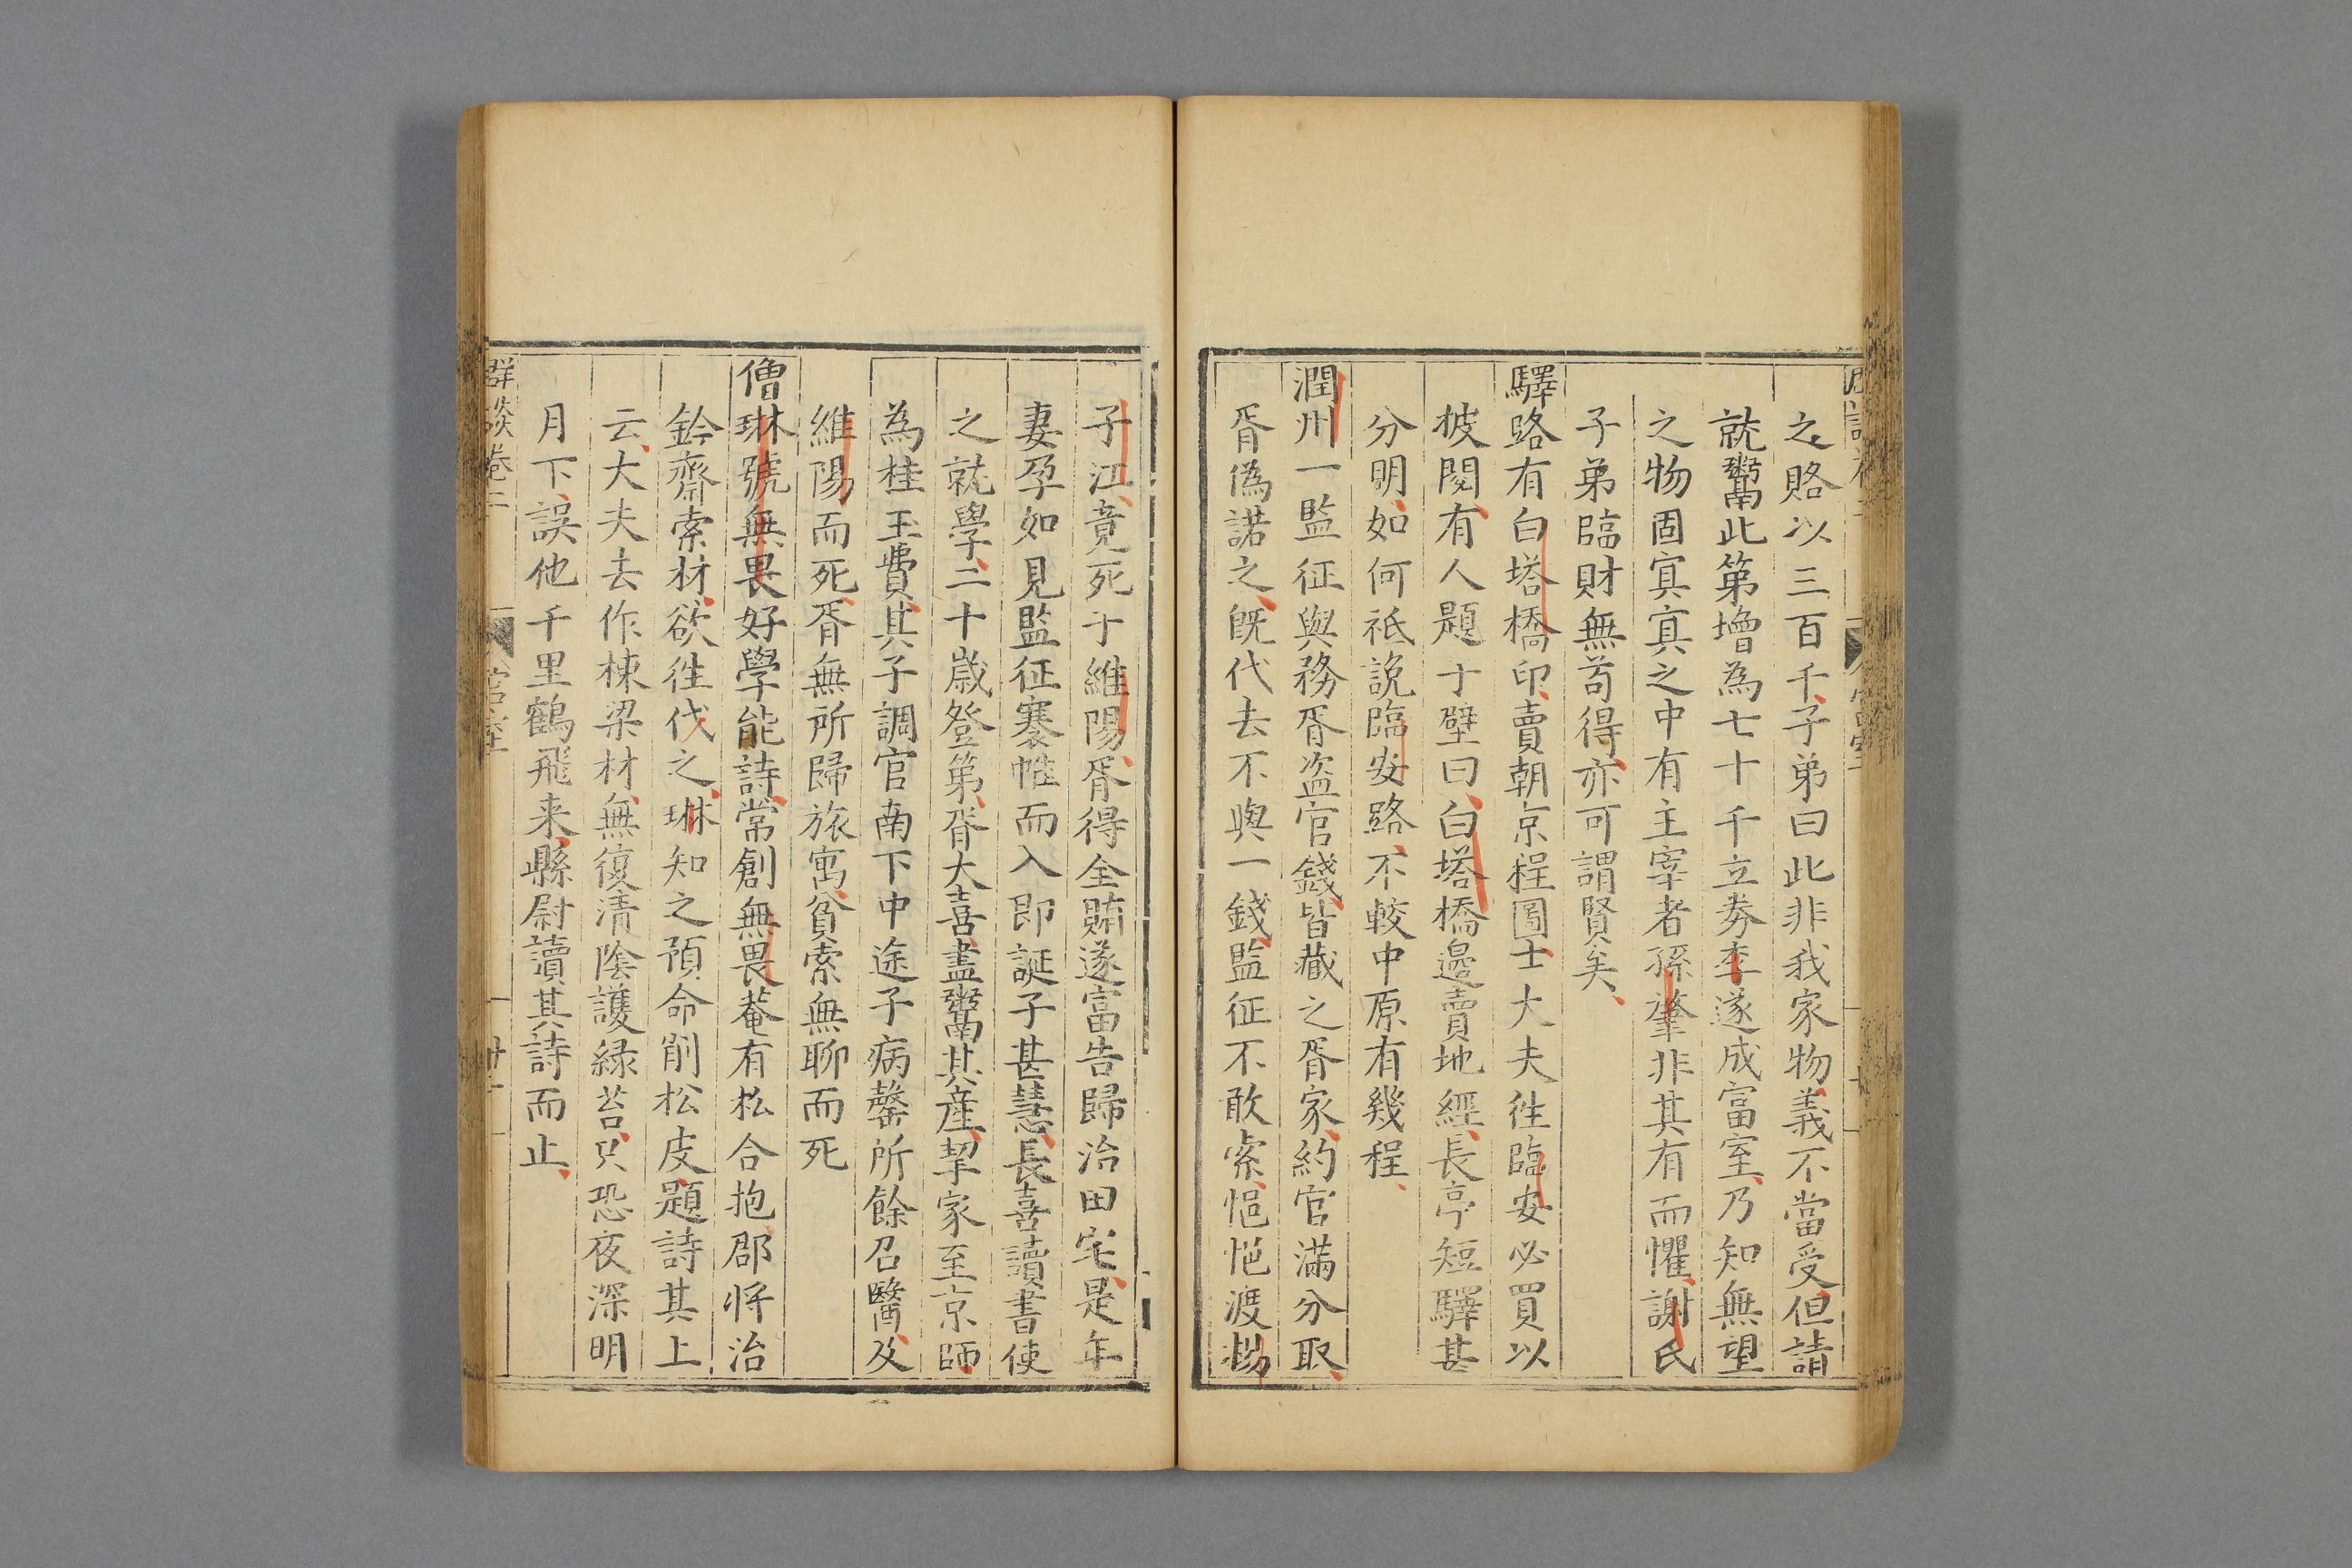 之賂以三百千子弟曰此非我家物義不當受但請
就鬻此第增為七十千立券李遂成富室乃知無望
之物固寘寘之中有主宰者孫肇非其有而懼謝氏
子弟臨財無苟得亦可謂賢矣
驛路有白塔橋印賣朝京程圖士大夫往臨安必買以
披閱有人題于壁曰白塔橋邊賣地經長亭短驛甚
分明如何祇說臨安路不較中原有幾程
潤州一監征與務胥盜官錢皆藏之胥家約官滿分取
胥偽諾之既代去不與一錢監征不敢索悒悒渡楊
子江竟死于維陽胥得全賄遂富告歸治田宅是年
妻孕如見監征褰帷而入即誕子甚慧長喜讀書使
之就學二十歲登第胥大喜盡鬻其產挈家至京師
為桂玉費其子調官南下中途子病罄所餘召醫及
維陽而死胥無所歸旅寓貧索無聊而死
僧琳號無畏好學能詩常創無畏菴有松合抱郡將治
鈐齋索材欲往伐之琳知之預命削松皮題詩其上
云大夫去作棟梁材無復清陰護綠苔只恐夜深明
月下誤他千里鶴飛来縣尉讀其詩而止
群談卷二